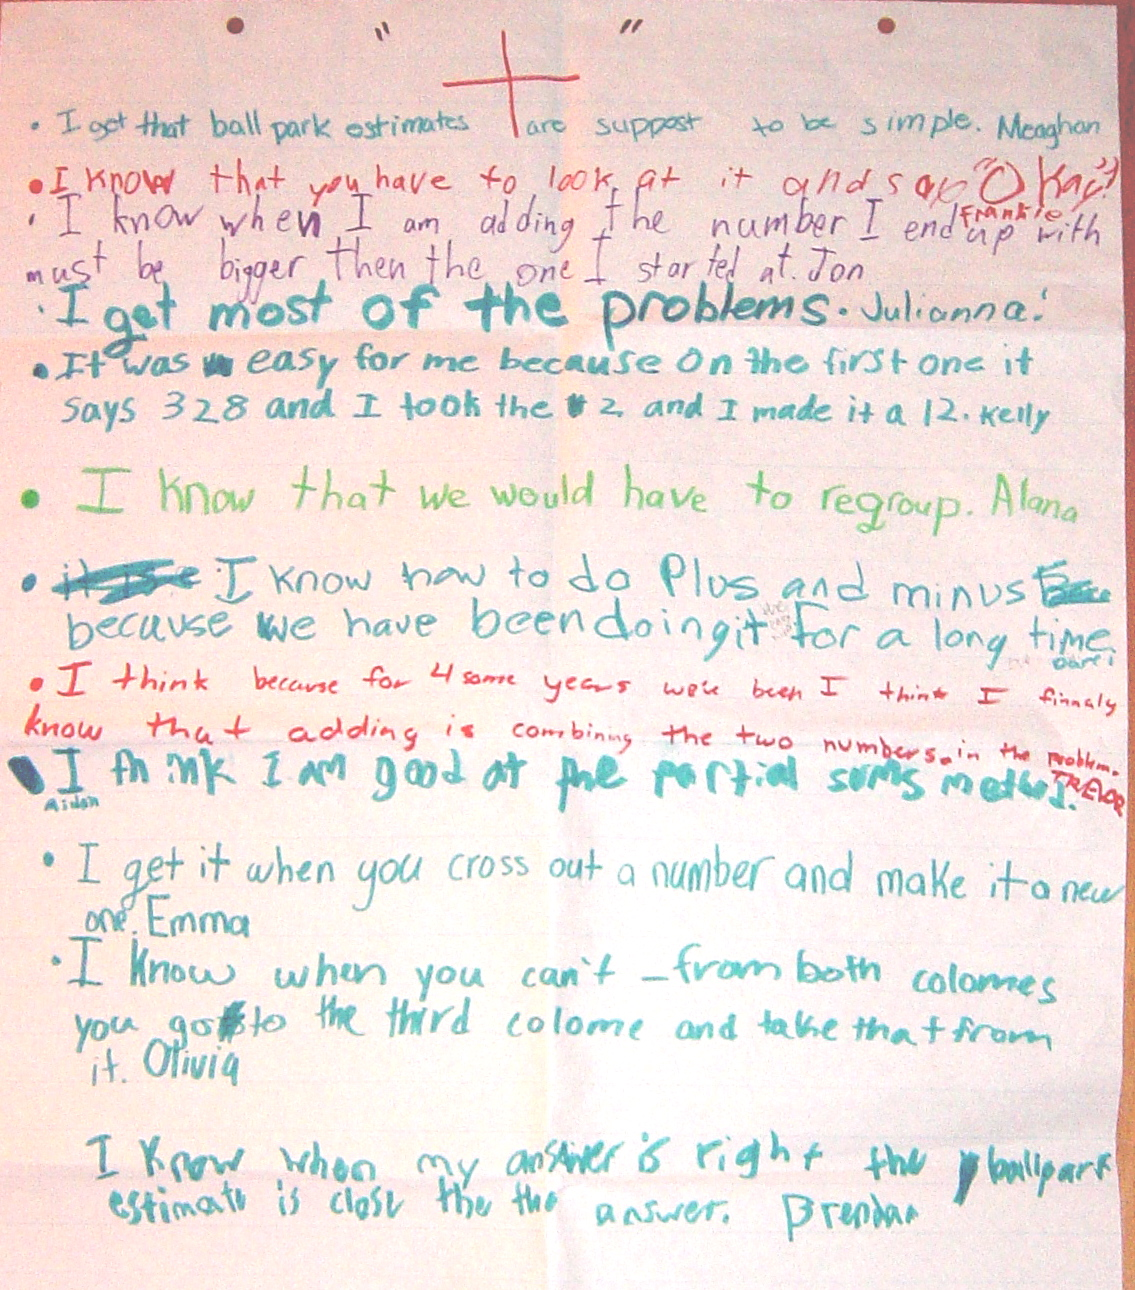 " "
+
• I get that ball park estimates are suppost to be simple. Meaghan
• I know that you have to look at it and say "O Kay"!
Frankie
• I know when I am adding the number I end up with
must be bigger then the one I started at. Jon
• I get most of the problems. Julianna!
• It was easy for me because on the first one it
says 328 and I took the 2 and I made it a 12. Kelly
• I know that we would have to regroup. Alana
• I know how to do Plus and minus
because we have been doing it for a long time.
• I think because for 4 some years we've been I think I finnaly
know that adding is combining the two numbers in the problem.
TREVOR
I think I am good at the partial sums method.
Aidan
• I get it when you cross out a number and make it a new
one. Emma
• I know when you can't - from both colomes
you go to the third colome and take that from
it. Olivia
I know when my answer is right the ballpark
estimate is close the the answer. Brendan